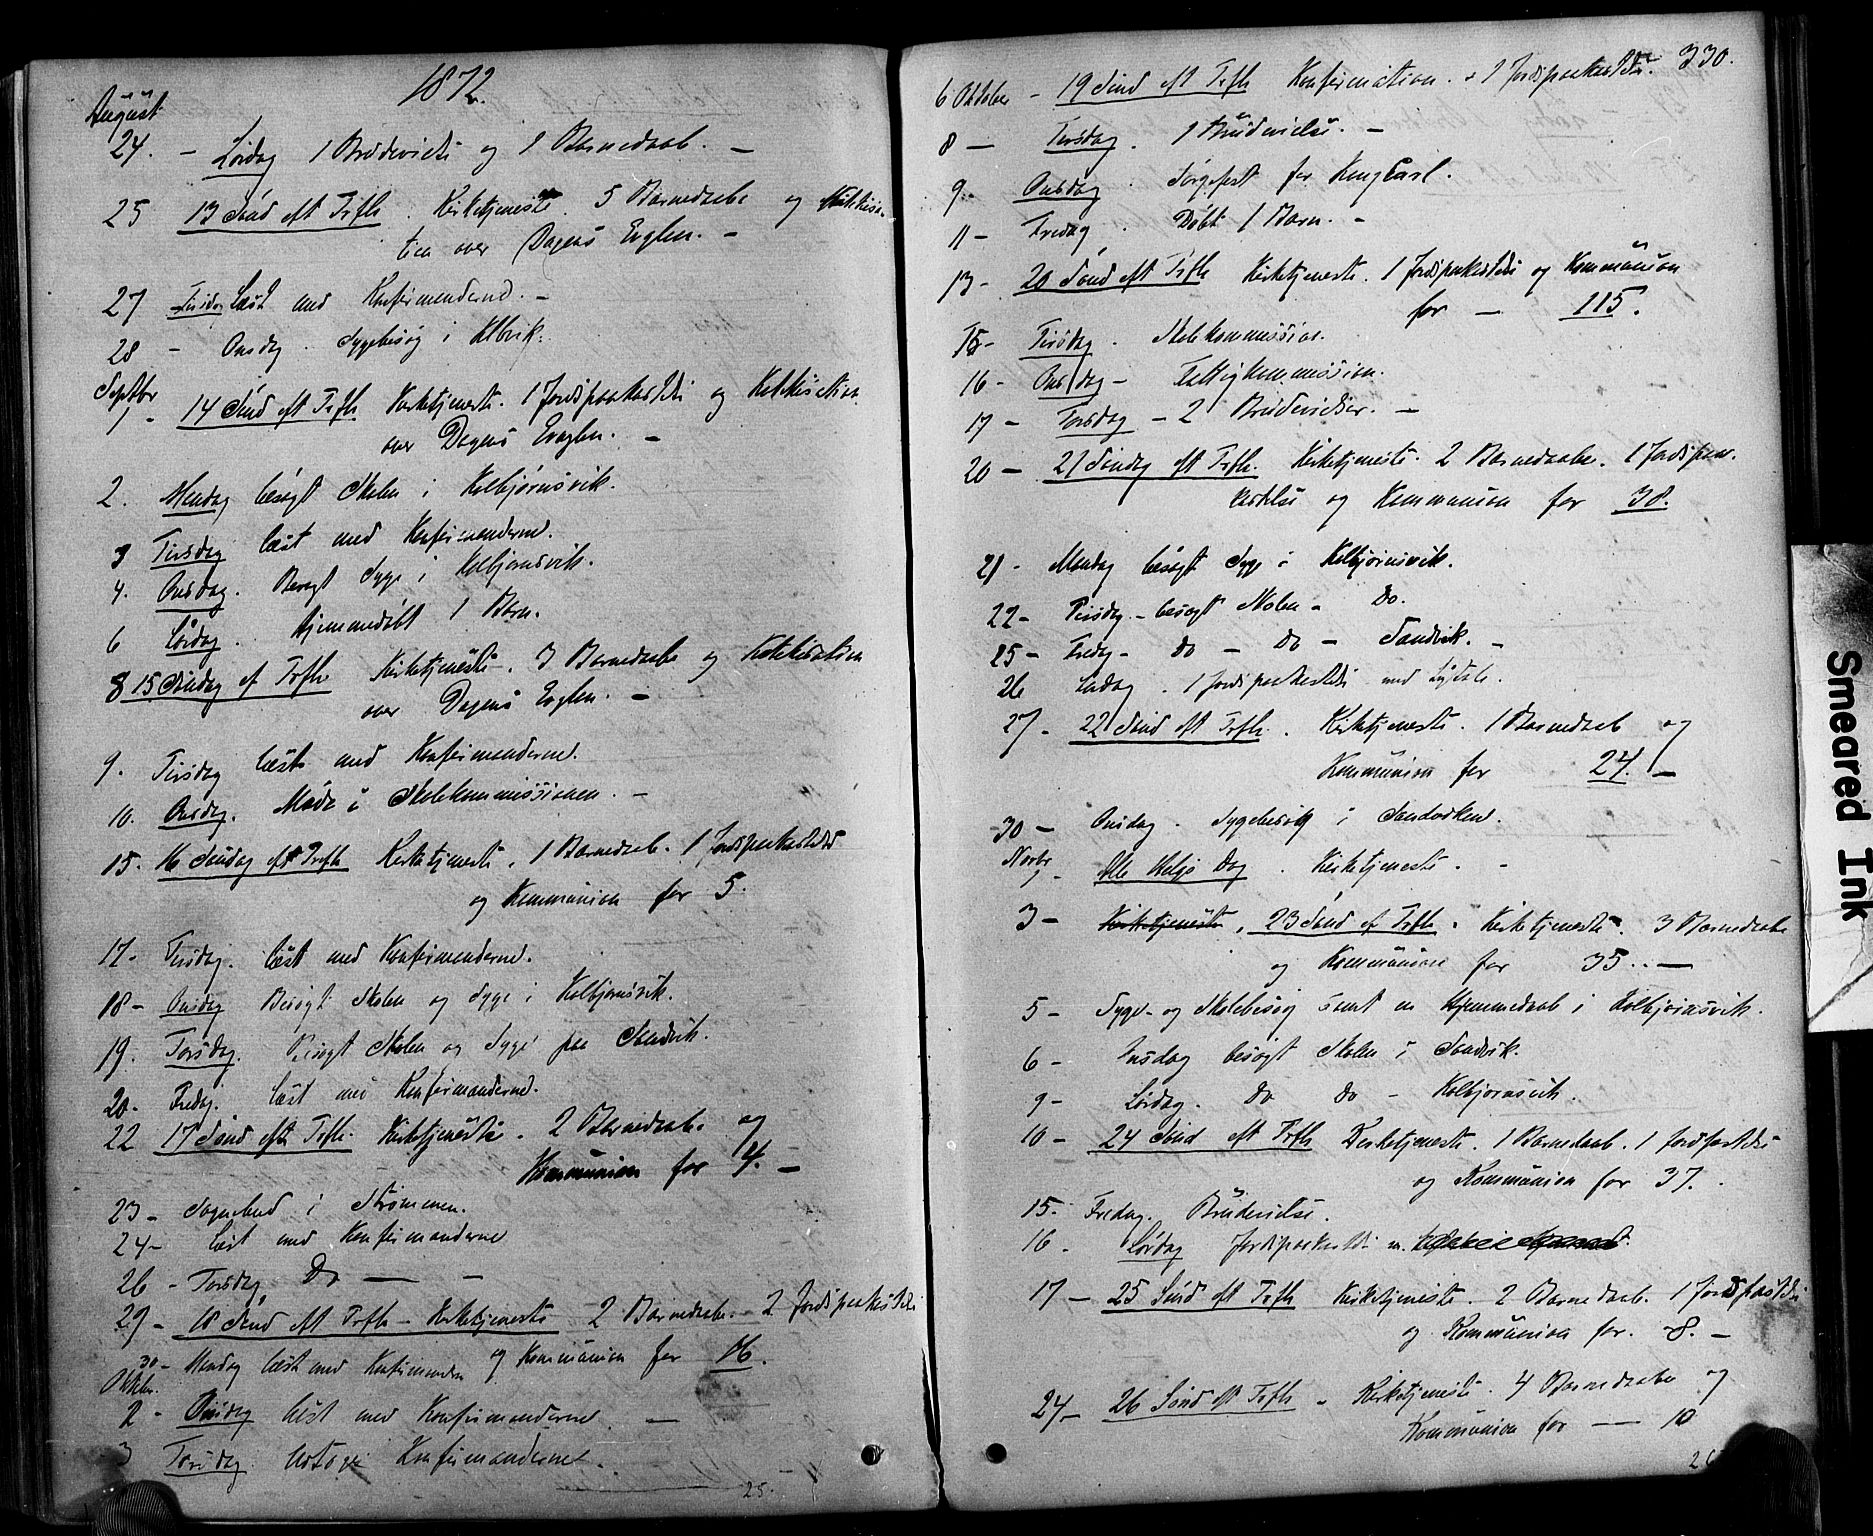 1872.
August
24. - Lördag 1 Brudevielse og 1 Barnedaab. -
25 13 Sönd eft Trfh. Kirketjeneste. 5 Barnedaabe og Katekisa-
tion over Dagens Evglm. -
27 Tirsdag Læst med Konfirmanderne. -
28 - Onsdag. Sygebesög i
Septbr
1 - 14 Sönd eft Trfh Kirketjeneste. 1 Jordspaakastelse og Katekisation
over Dagens Evaglm. -
2. Mandag besögt Skolen i Kolbjörnsvik.
3 Tirsdag læst med Konfirmanderne.
4. Onsdag. Besøgt Syge i Kolbjørnsvik.
6 Lørdag. Hjemmedøbt 1 Barn.
8 15 Söndag ef Trfh. Kirketjeneste. 3 Barnedaabe og Katekisation
over Dagens Evglm. -
9. Tirsdag læst med Konfirmanderne.
10. Onsdag. Møde i Skolekommissionen. -
15. 16 Söndag eft Trfh Kirketjeneste. 1 Barnedaab. 1 Jordspaakastelse
og Kommünion for 5.
17. Tirsdag. læst med Konfirmanderne.
18 - Onsdag Besögt Skolen og Syge i Kolbjørnsvik.
19. Torsdag. Besögt Skolen og Syge paa Sandvik.
20. Fredag. læst med Konfirmanderne.
22 17 Sönd efter Trfh. Kirketjeneste. 2 Barnedaab. og
Kommünion for 4. -
23 - Sognebud i Strömmen.
24 - læst med Konfirmanderne
26 - Torsdag, Do - -
29 - 18 Sönd eft Trfh - Kirketjeneste 2 Barnedaabe. 2 Jordspaakastelse
og Kommünion for 16.
30 - Mandag læst med Konfirmanderne
Oktbr.
2 - Onsdag læst med Konfirmanderne. -
3 Torsdag. Konfirmanderne.
25.
330.
6 Oktober - 19 Sönd eft Trfh Konfirmation. + 1 Jordspaakastelse
8 - Tirsdag. 1 Brüdevielse. -
9. Onsdag. Sørgefest for Kong Carl.
11 - Fredag. Döbt 1 Barn. -
13 - 20 Sönd eft Trfh Kirketjeneste. 1 Jordspaakastelse og Kommünion
for - 115.
15 - Tirsdag. Skolekommission.
16 - Onsdag - Fattigkommission.
17 - Torsdag - 2 Brüdevielser. -
20 - 21 Søndag eft Trfh. Kirketjeneste. 2 Barnedaabe. 1 Jordspaa-
kastelse og Kommunion for 38.
21 - Mandag besögt Syge i Kolbjörnsvik.
22 - Tirsdag - besøgt Skolen - Do.
25 - Fredag - do - Do - Sandvik. -
26 Lördag. 1 Jordspaakastelse med
27 - 22 Sönd eft Trfh. Kirketjeneste. 1 Barnedaab og
Kommünion for 24. -
30 - Onsdag. Sygebesög i Sandviken.
Novbr
1 - Alle Helgs Dag. Kirketjeneste. -
3 - Kirketjeneste. 23 Sönd ef Trfh. Kirketjeneste. 3 Barnedaabe
og Kommünion for 35. -
5 - Syge- og Skolebesög samt en Hjemmedaab i Kolbjörnsvik.
6 - Onsdag besögt Skolen i Sandvik.
9 - Lördag. Do Do - Kolbjørnsvik.
10 - 24 Sönd eft Trfh Kirketjeneste. 1 Barnedaab. 1 Jordspaastelse
og Kommünion for 37.
15. Fredag. Brüdevielse.
16. Lördag Jordspaakastelse
17 - 25 Sönd eft Trfh Kirketjeneste. 2 Barnedaab. 1 Jordspaastelse
og Kommünion for. 8. -
24 - 26 Sönd eft Trfh. Kirketjeneste. 4 Barnedaabe og
Kommunion for - 10
Smeared Ink